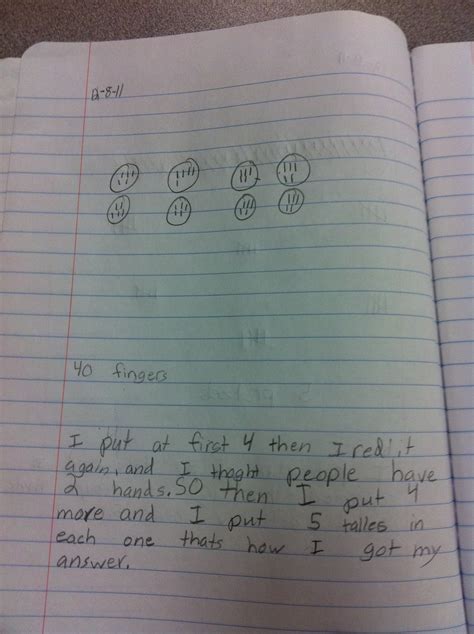 12-8-11
40 fingers
I put at first 4 then I red it
again, and I thoght people have
2 hands. SO then I put 4
more and I put 5 talles in
each one thats how I got my
answer.